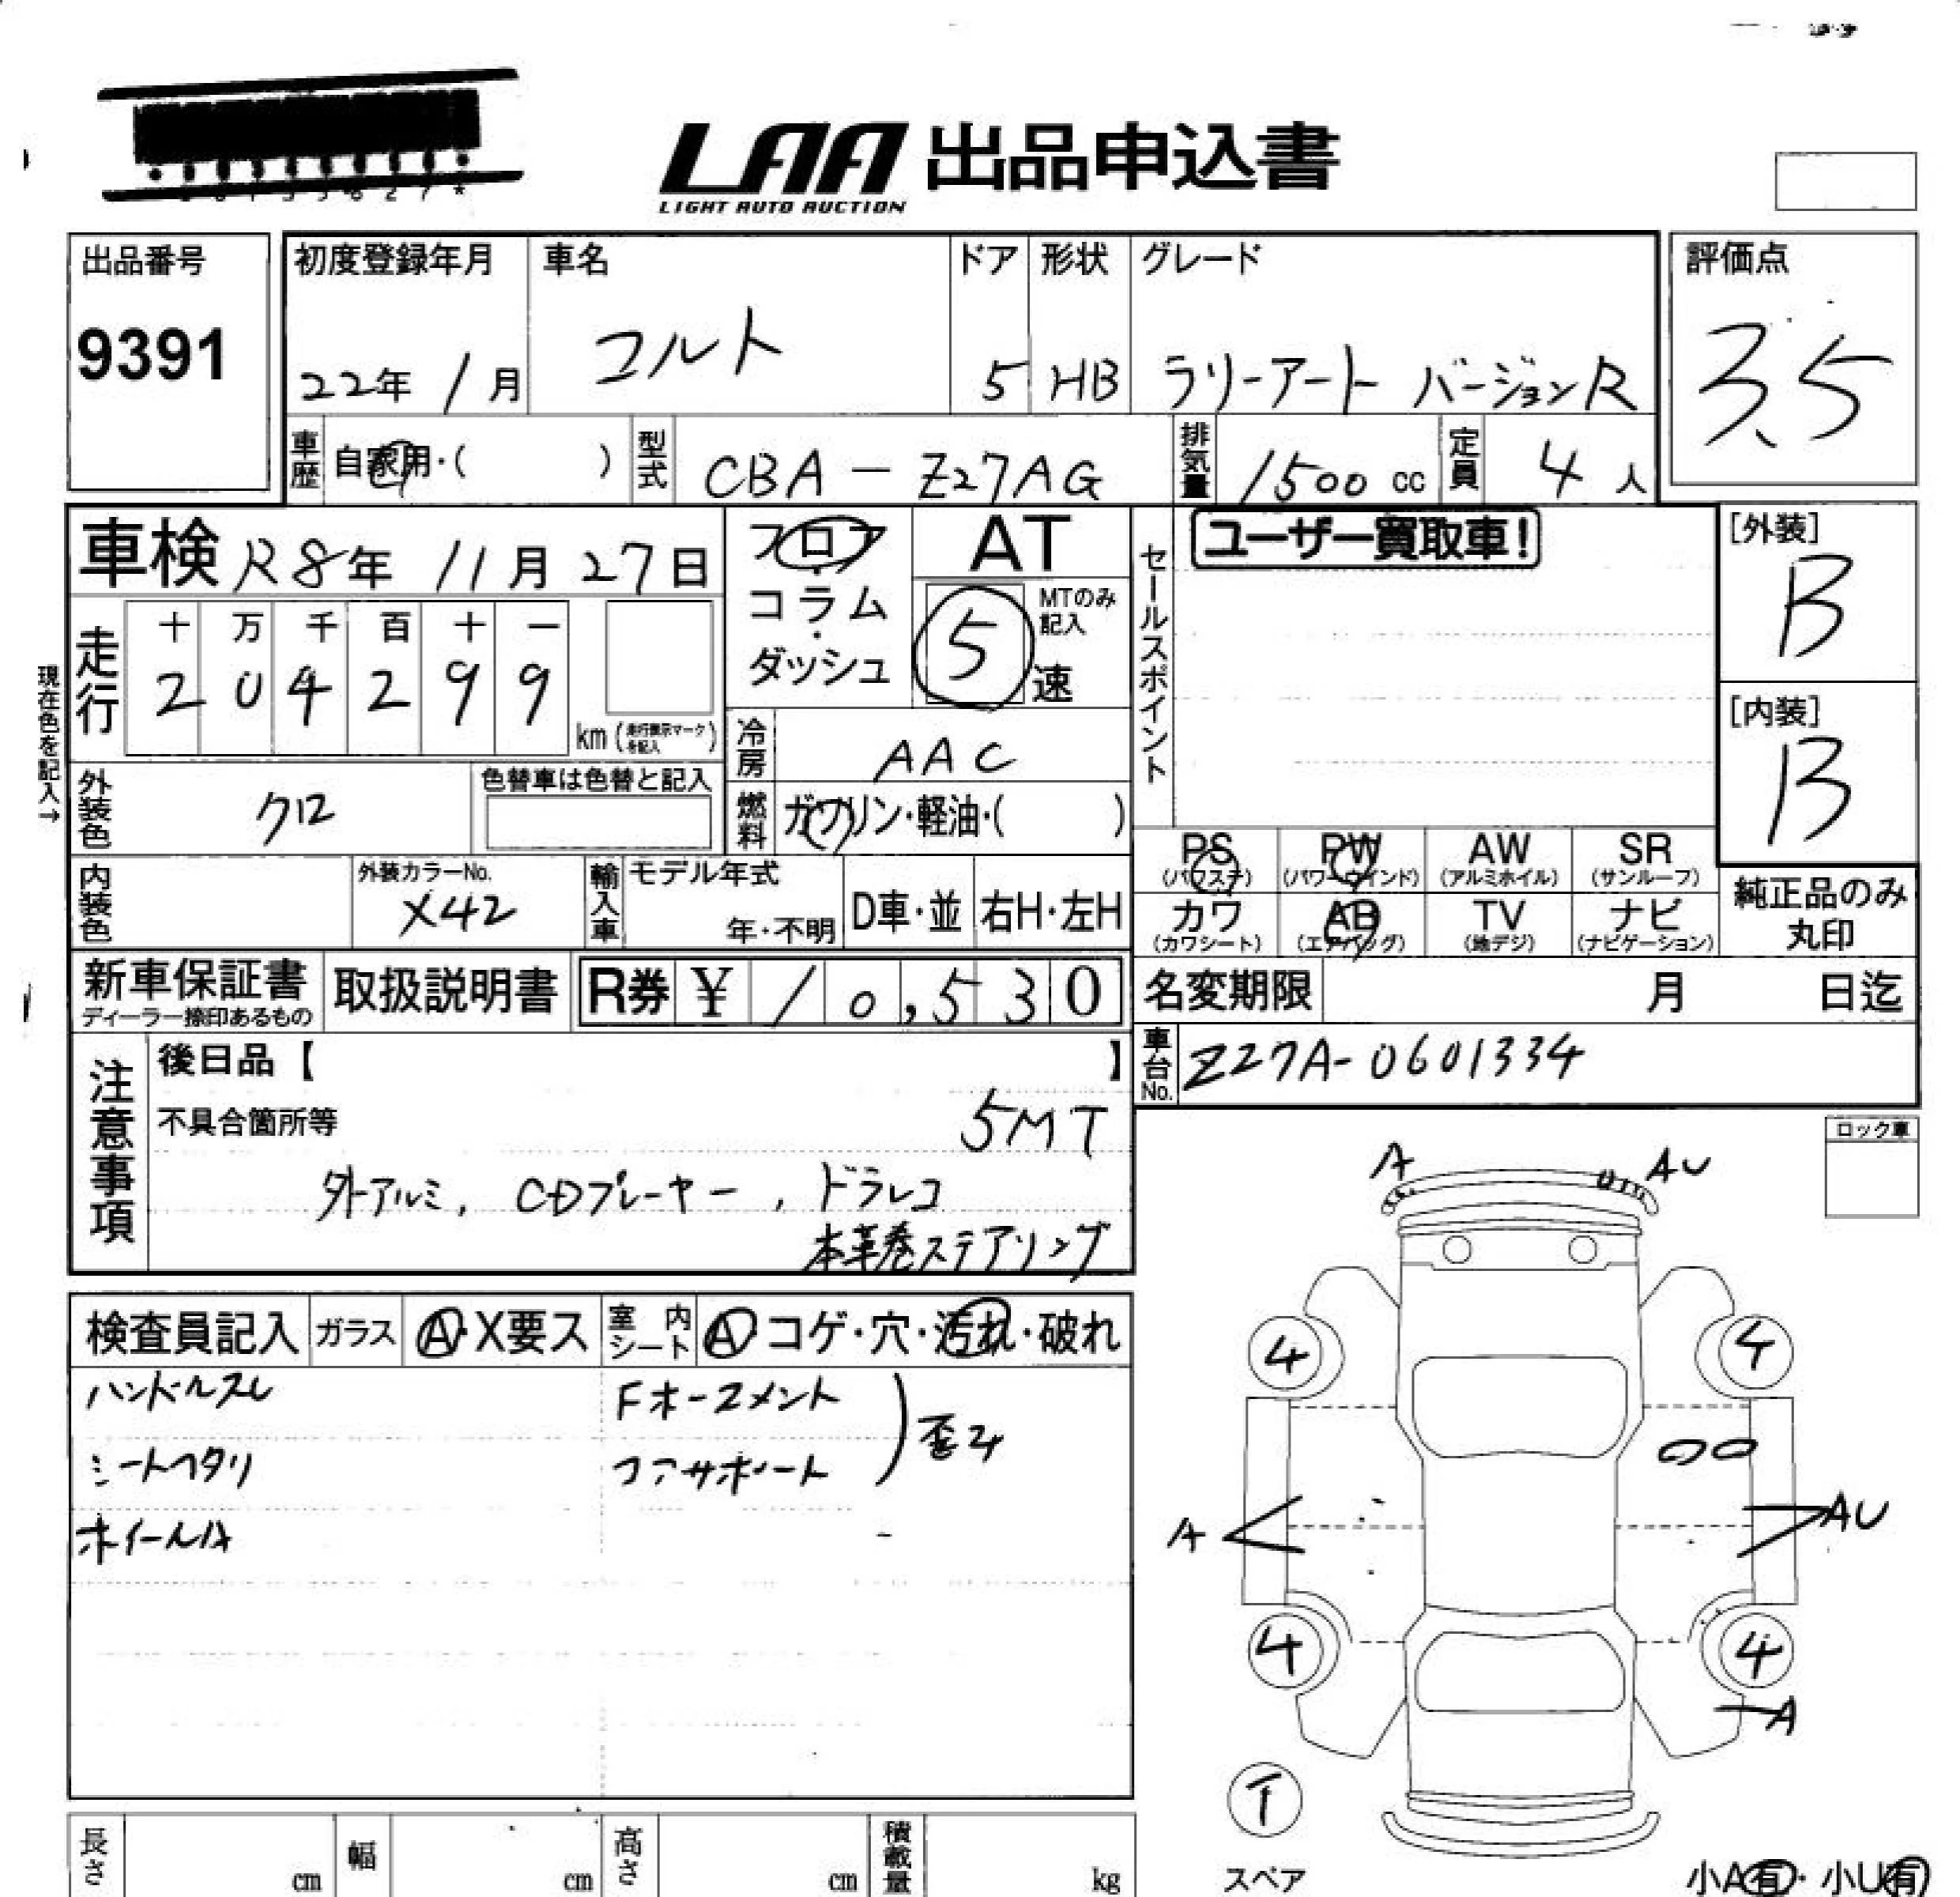 LAA 出品申込書
LIGHT AUTO AUCTION
出品番号
9391
初度登録年月
22年 1月
車名
コルト
ドア
5
形状
HB
グレード
ラリーアート バージョンR
評価点
3.5
車歴 自家用・( )
型式 CBA-Z27AG
排気量 1500 cc
定員 4 人
車検 R8年 11月 27日
フロア・コラム・ダッシュ
AT
5 速
MTのみ記入
セールスポイント
ユーザー買取車!
[外装]
B
[内装]
B
現在色を記入→
走行
十 万 千 百 十 一
2 0 4 2 9 9
km (走行表示マークを記入)
冷房 AAC
外装色 クロ
色替車は色替と記入
燃料 ガソリン・軽油・( )
内装色
外装カラーNo.
X42
輸入車
モデル年式
年・不明
D車・並
右H・左H
PS (パワステ)
PW (パワーウインド)
AW (アルミホイル)
SR (サンルーフ)
カワ (カワシート)
AB (エアバッグ)
TV (地デジ)
ナビ (ナビゲーション)
純正品のみ丸印
新車保証書
ディーラー捺印あるもの
取扱説明書
R券 ¥ 10,530
名変期限 月 日迄
車台No. Z27A-0601334
注意事項
後日品【 】
不具合箇所等
5MT
外アルミ, CDプレーヤー, ドラレコ
本革巻ステアリング
ロック車
検査員記入
ガラス A・X要ス
室内シート A コゲ・穴・汚れ・破れ
ハンドルスレ
シートヘタリ
ホイールA
Fホースメント
コアサポート
歪み
A
AU
4
4
A
AU
4
4
A
T
スペア
小A有・小U有
長さ cm
幅 cm
高さ cm
積載量 kg